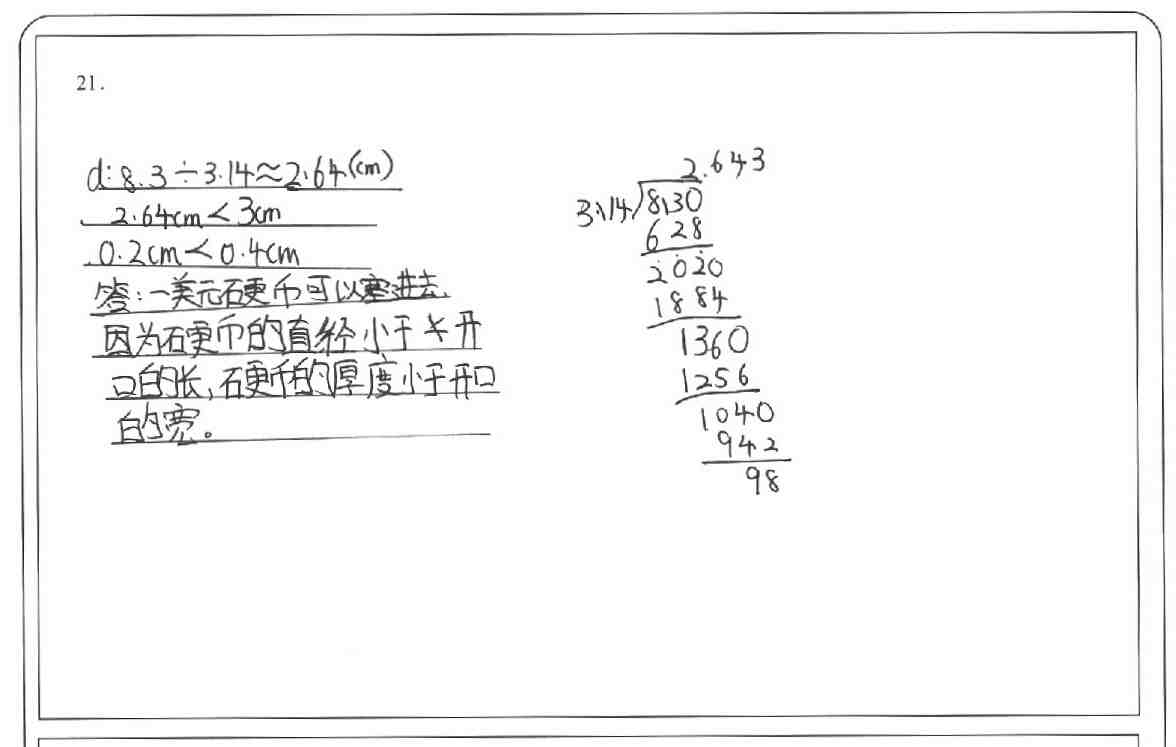 21.
d:8.3÷3.14≈2.64(cm)
2.64cm<3cm
0.2cm<0.4cm
答:一美元硬币可以塞进去,
因为硬币的直径小于长开
口的长,硬币的厚度小于开口
的宽。
2.643
3.14)8.30
628
2020
1884
1360
1256
1040
942
98